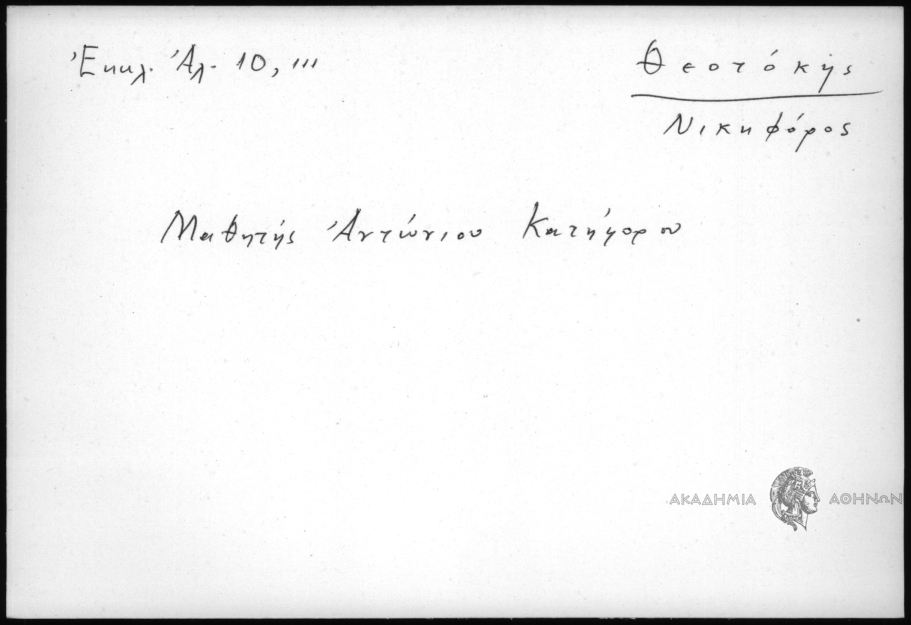 Ἐκκλ. Ἀλ. 10, 111
Θεοτόκης
Νικηφόρος
Μαθητής Ἀντώνιου Κατήφορου
ΑΚΑΔΗΜΙΑ ΑΘΗΝΩΝ